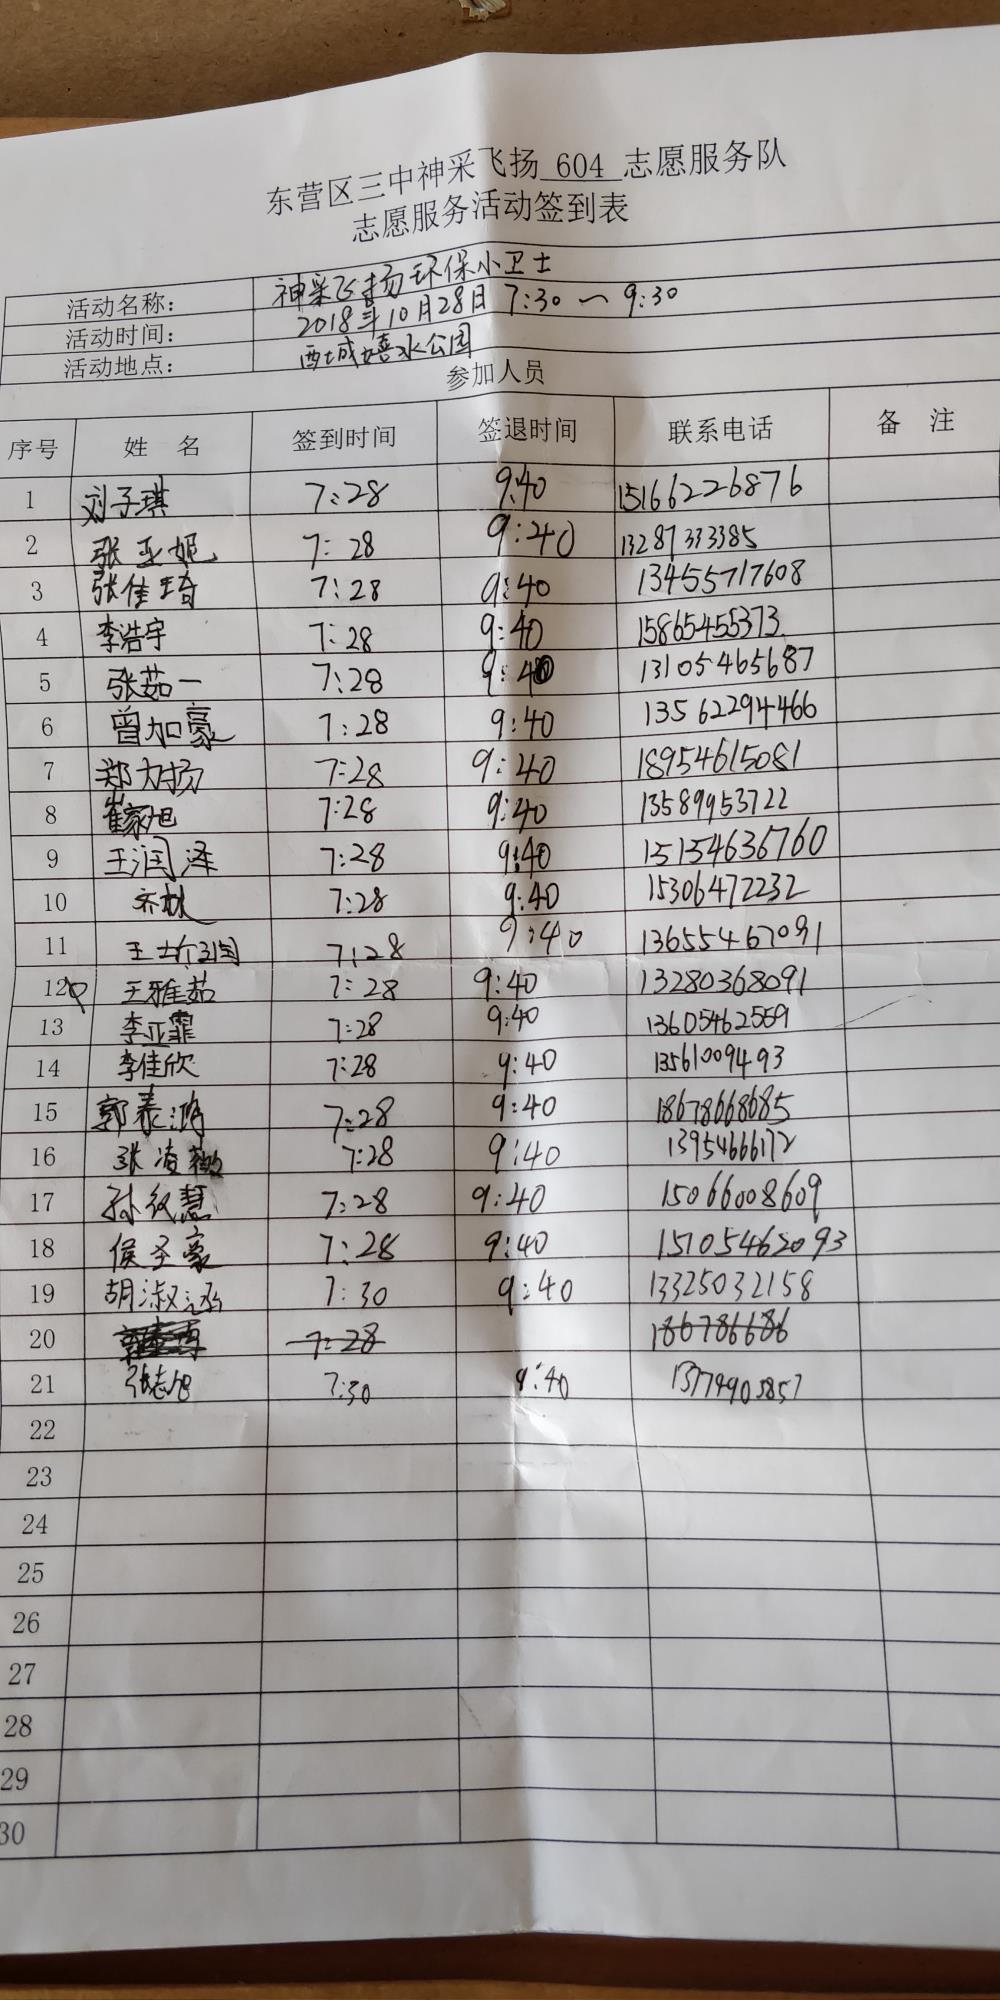 东营区三中神采飞扬 604 志愿服务队
志愿服务活动签到表
活动名称: 神采飞扬环保小卫士
活动时间: 2018年10月28日 7:30 — 9:30
活动地点: 西城嬉水公园
参加人员
序号 姓 名 签到时间 签退时间 联系电话 备 注
1 刘子琪 7:28 9:40 15166226876
2 张亚妮 7:28 9:40 13287333385
3 张佳琦 7:28 9:40 13455717608
4 李浩宇 7:28 9:40 15865455373
5 张茹一 7:28 9:40 13105465687
6 曾加豪 7:28 9:40 13562294466
7 郑力扬 7:28 9:40 18954615081
8 崔家旭 7:28 9:40 13589953722
9 王润泽 7:28 9:40 15154636760
10 7:28 9:40 15306472232
11 7:28 9:40 13655467091
12 王雅茹 7:28 9:40 13280368091
13 李亚霏 7:28 9:40 13605462559
14 李佳欣 7:28 9:40 13561009493
15 郭泰鸿 7:28 9:40 18678668685
16 张凌薇 7:28 9:40 13954666172
17 7:28 9:40 15066008609
18 侯圣豪 7:28 9:40 15105462093
19 胡淑涵 7:30 9:40 13325032158
20 7:28 186786686
21 7:30 9:40
22
23
24
25
26
27
28
29
30